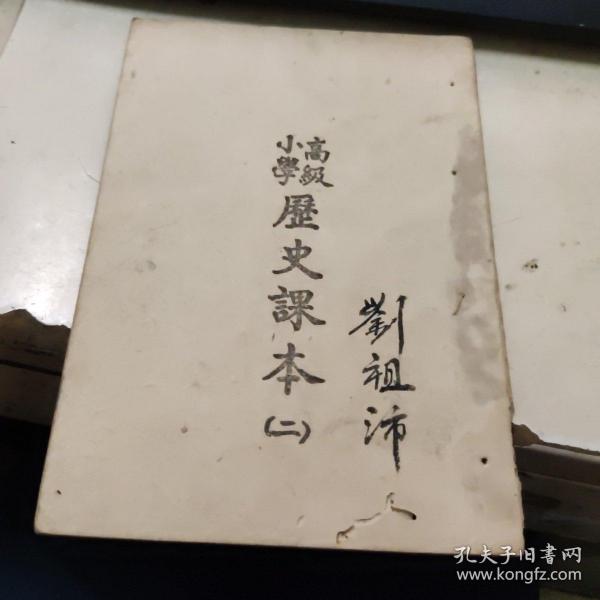 高級
小學
歷史課本
(二)
劉祖沛
孔夫子旧書网
www.kongfz.com